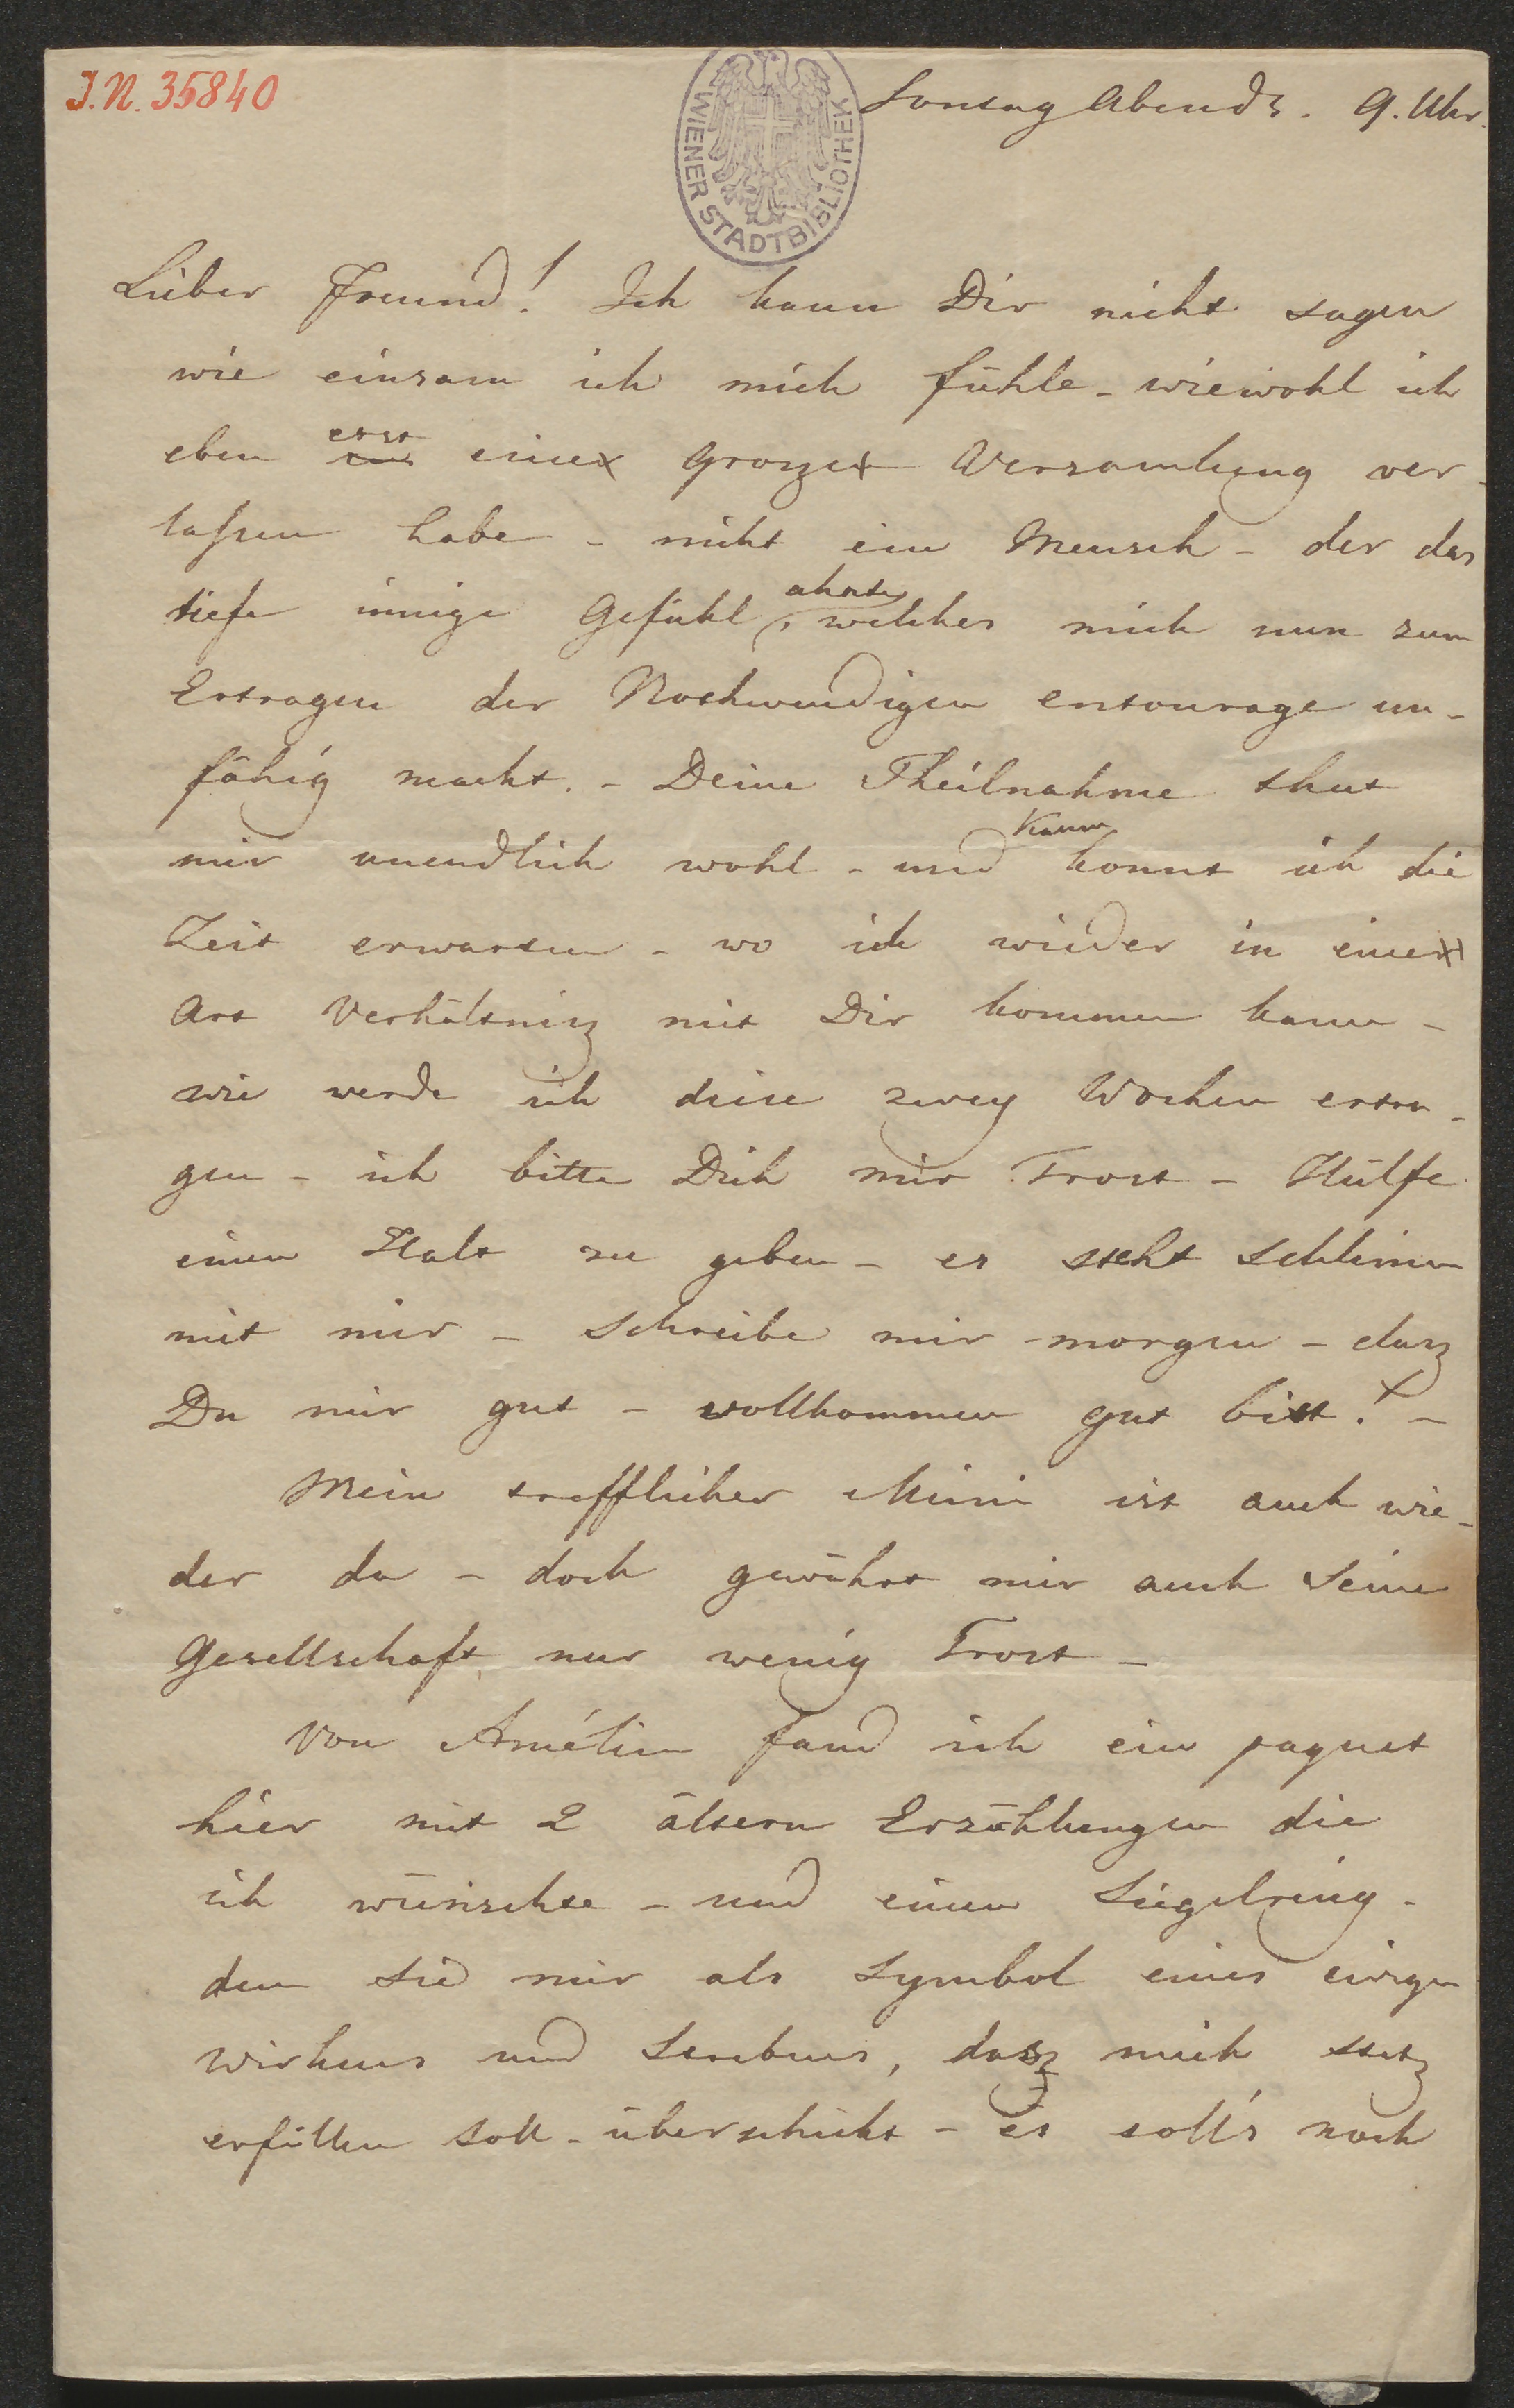 J.N. 35840
WIENER STADTBIBLIOTHEK
Sontag Abends. 9. Uhr.
Lieber Freund! Ich kann Dir nicht sagen
wie einsam ich mich fühle - wiewohl ich
erst
eben eine große Versamlung ver-
laßen habe - nicht ein Mensch - der das
ahnte
tiefe innige Gefühl, welches mich nun zum
Ertragen der Nothwendigen entourage un-
fähig macht. - Deine Theilnahme thut
kaum
mir unendlich wohl - und konnt ich die
Zeit erwarten - wo ich wieder in eine
Art Verhältniß mit Dir kommen kann -
wie werde ich diese zwey Wochen ertra-
gen - ich bitte Dich mir Trost - Hülfe
einen Halt zu geben - es steht schlimm
mit mir - schreibe mir - morgen - dasz
Du mir gut - vollkommen gut bist! -
Mein trefflicher Mimi ist auch wie-
der da - doch gewährt mir auch seine
Gesellschaft nur wenig Trost -
Von Amélien fand ich ein paquet
hier mit 2 ältern Erzählungen die
ich wünschte - und einen Siegelring -
den sie mir als Symbol eines ewigen
Wirkens und Strebens, das mich stetz
erfüllen soll - überschickt - es soll's noch